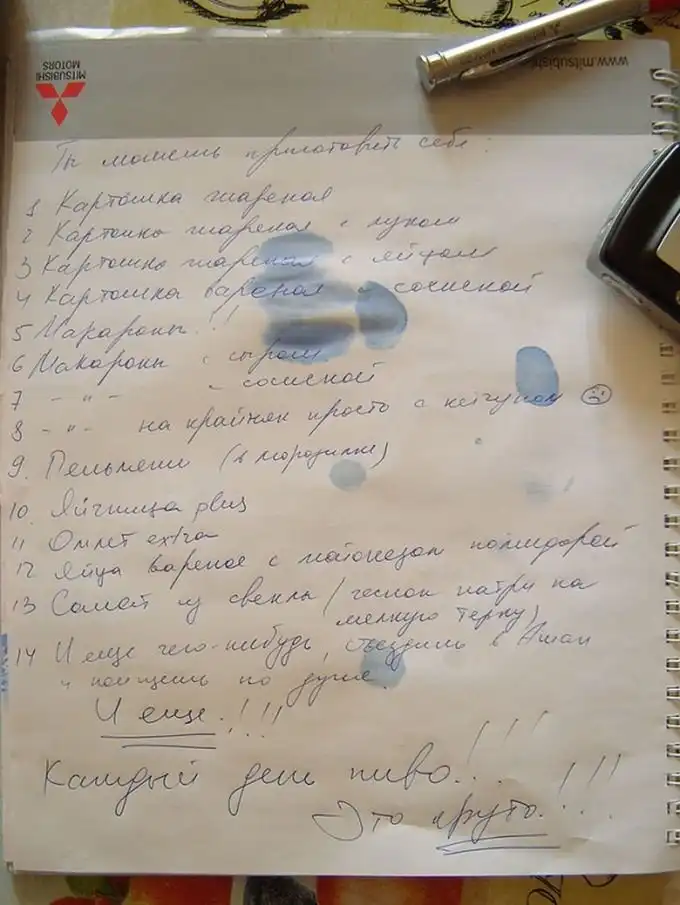 MITSUBISHI
MOTORS
www.mitsubishi
Ты можешь приготовить себе:
1 Картошка жареная
2 Картошка жареная с луком
3 Картошка жареная с яйцом
4 Картошка вареная с сосиской
5 Макароны!!
6 Макароны с сыром
7 - " - с сосиской
8 - " - на крайняк просто с кетчупом ☹
9. Пельмени (в морозилке)
10. Яичница plus
11 Омлет extra
12 Яйца вареное с майонезом помидорой
13 Салат из свеклы (чеснок натри на
мелкую терку)
14 И еще чего-нибудь, съездишь в Ашан
и поищешь по душе.
И еще!!!
Каждый день пиво...!!!
Это круто!!!!